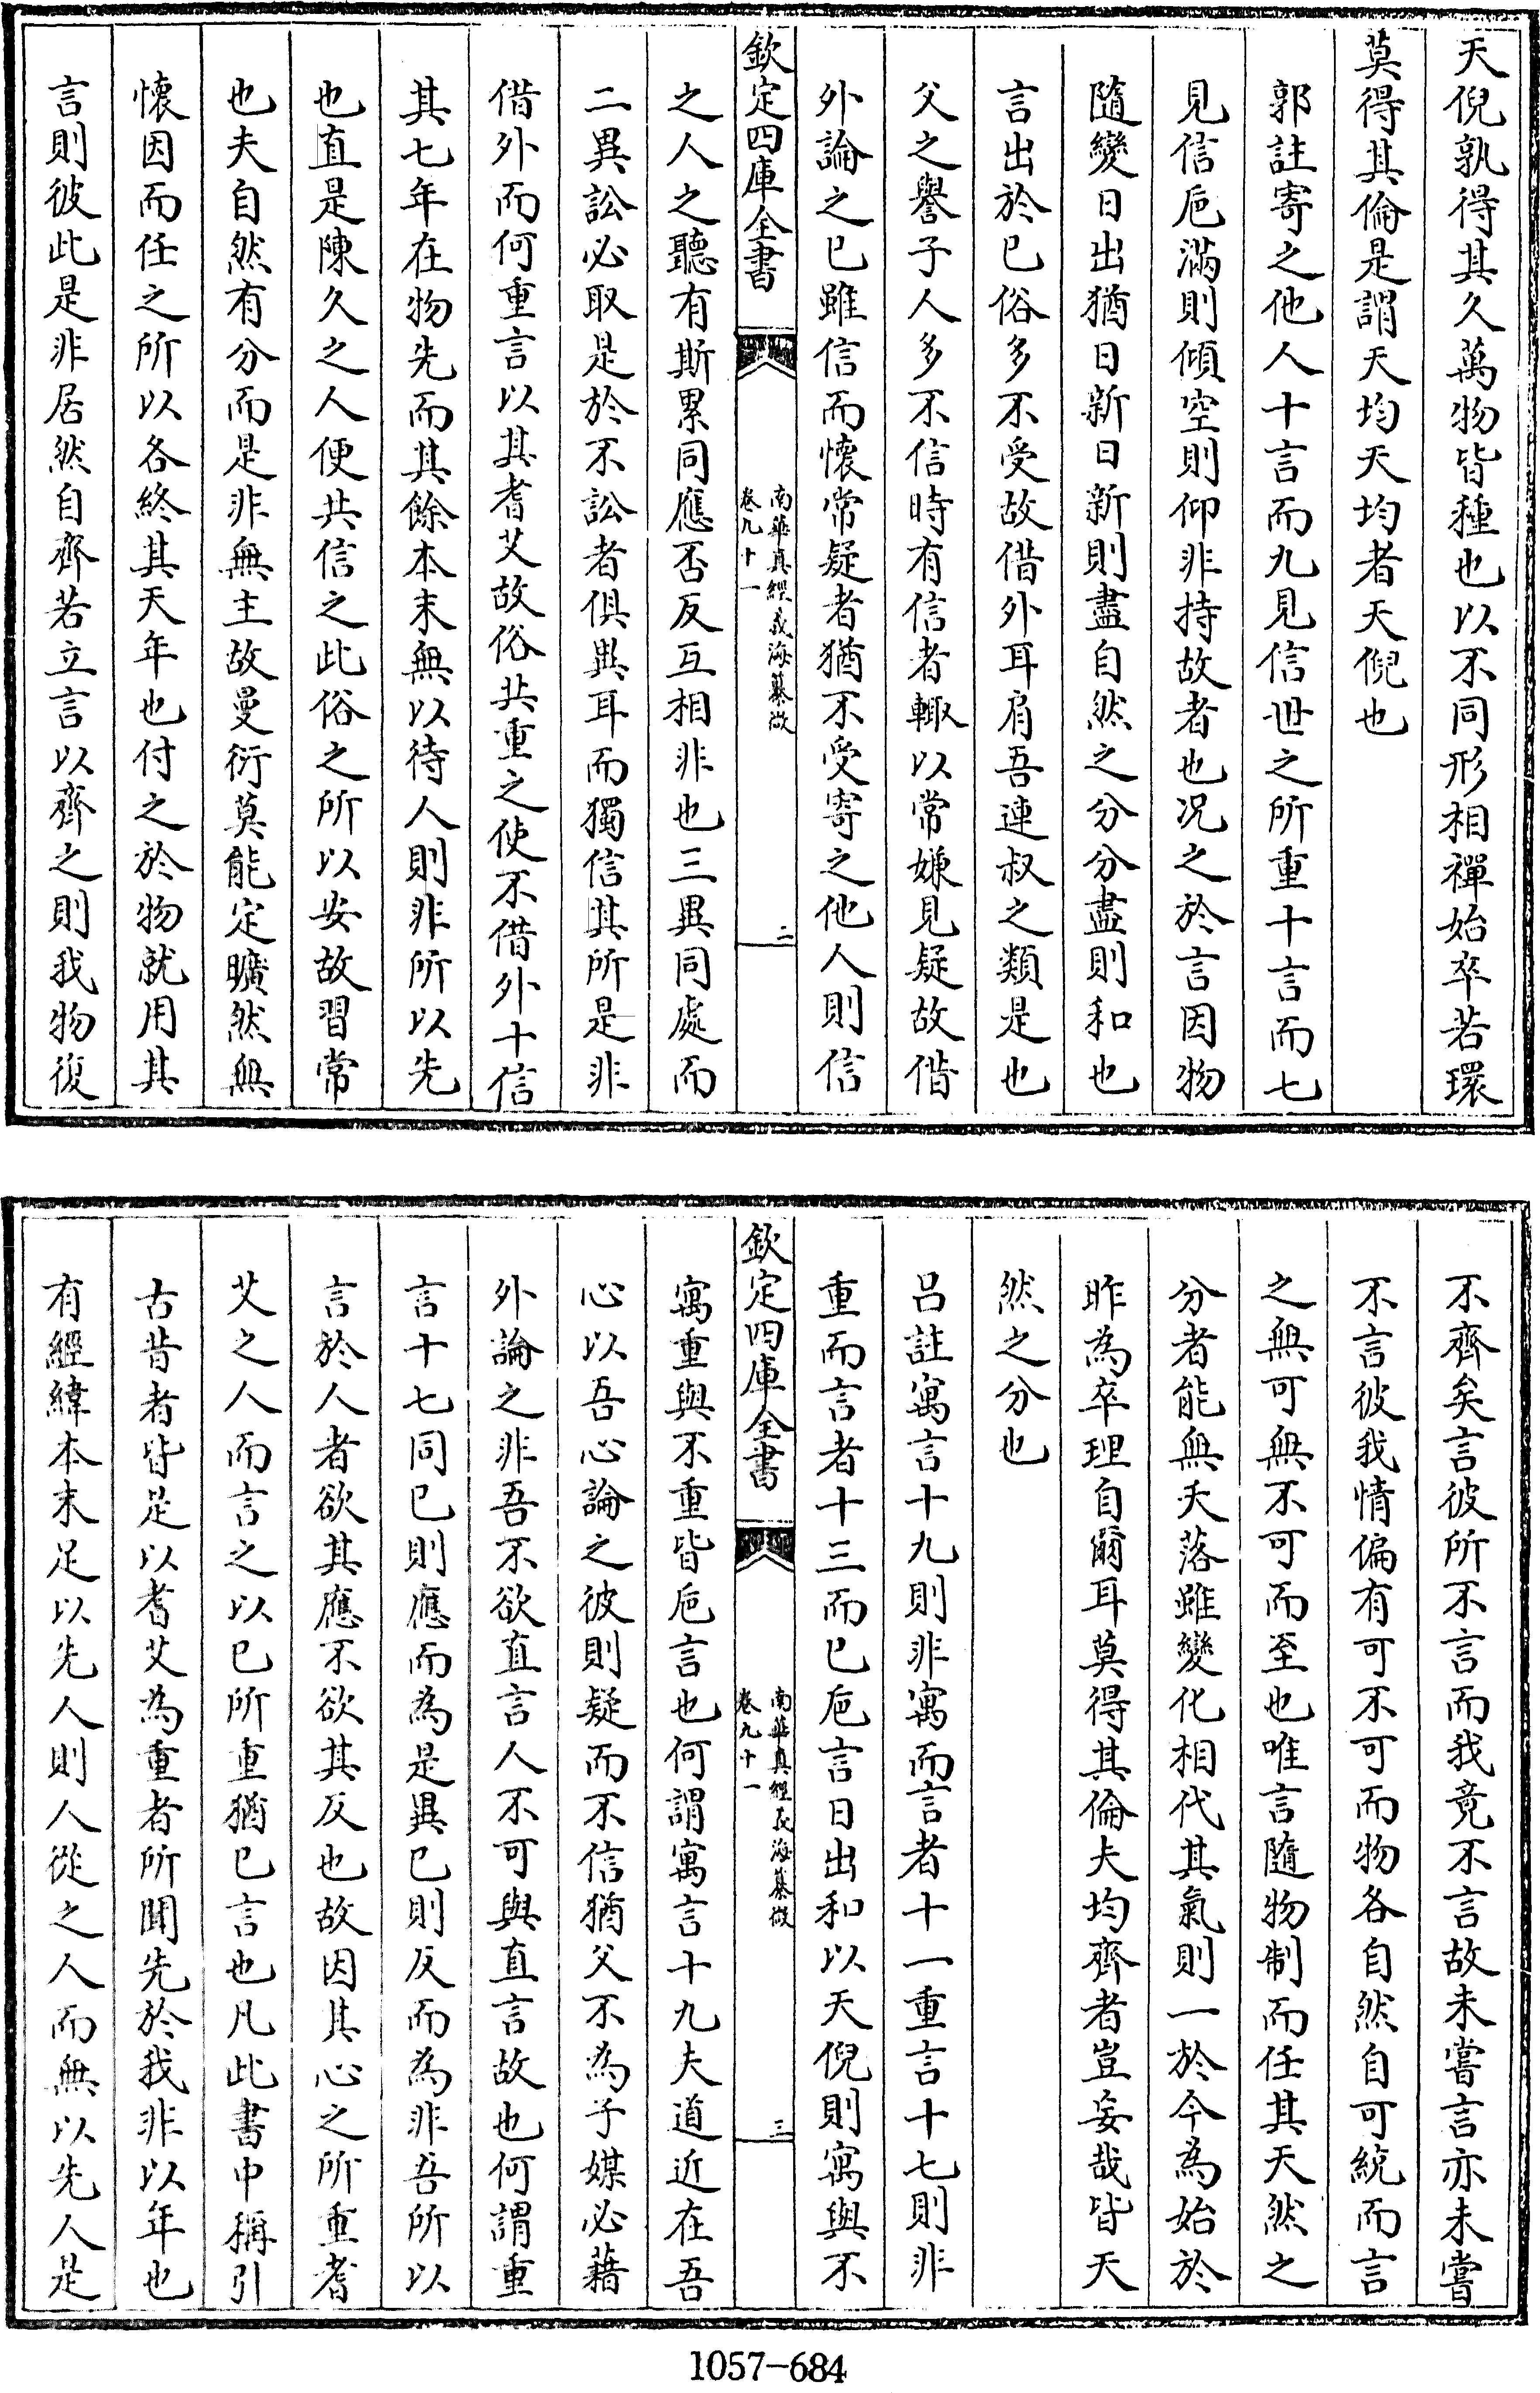 天倪孰得其久萬物皆種也以不同形相禪始卒若環
莫得其倫是謂天均天均者天倪也
郭註寄之他人十言而九見信世之所重十言而七
見信巵滿則傾空則仰非持故者也况之於言因物
隨變日出猶日新日新則盡自然之分分盡則和也
言出於已俗多不受故借外耳肩吾連叔之類是也
父之譽子人多不信時有信者輙以常嫌見疑故借
外論之已雖信而懷常疑者猶不受寄之他人則信
欽定四庫全書
南華真經義海纂微
卷九十一
二
之人之聽有斯累同應否反互相非也三異同處而
二異訟必取是於不訟者俱異耳而獨信其所是非
借外而何重言以其耆艾故俗共重之使不借外十信
其七年在物先而其餘本末無以待人則非所以先
也直是陳久之人便共信之此俗之所以安故習常
也夫自然有分而是非無主故曼衍莫能定曠然無
懷因而任之所以各終其天年也付之於物就用其
言則彼此是非居然自齊若立言以齊之則我物復
不齊矣言彼所不言而我竟不言故未嘗言亦未嘗
不言彼我情偏有可不可而物各自然自可統而言
之無可無不可而至也唯言隨物制而任其天然之
分者能無夭落雖變化相代其氣則一於今為始於
昨為卒理自爾耳莫得其倫夫均齊者豈妄哉皆天
然之分也
呂註寓言十九則非寓而言者十一重言十七則非
重而言者十三而已巵言日出和以天倪則寓與不
欽定四庫全書
南華真經義海纂微
卷九十一
三
寓重與不重皆巵言也何謂寓言十九夫道近在吾
心以吾心論之彼則疑而不信猶父不為子媒必藉
外論之非吾不欲直言人不可與直言故也何謂重
言十七同已則應而為是異已則反而為非吾所以
言於人者欲其應不欲其反也故因其心之所重耆
艾之人而言之以已所重猶已言也凡此書中稱引
古昔者皆足以耆艾為重者所聞先於我非以年也
有經緯本末足以先人則人從之人而無以先人是
1057-684